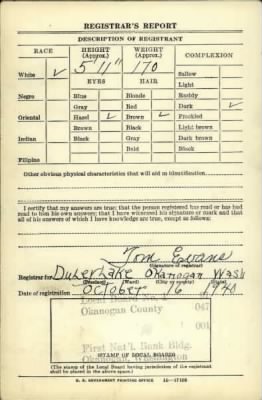 REGISTRAR'S REPORT
DESCRIPTION OF REGISTRANT
RACE HEIGHT (Approx.) WEIGHT (Approx.) COMPLEXION
5' 11" 170
White ✓ EYES HAIR Sallow
Light
Negro Blue Blonde Ruddy
Gray Red Dark ✓
Oriental Hazel ✓ Brown ✓ Freckled
Brown Black Light brown
Indian Black Gray Dark brown
Bald Black
Filipino
Other obvious physical characteristics that will aid in identification
I certify that my answers are true; that the person registered has read or has had
read to him his own answers; that I have witnessed his signature or mark and that
all of his answers of which I have knowledge are true, except as follows:
Tom Evans
(Signature of registrar)
Registrar for Lake Okanogan Wash
(Precinct) (City or county) (State)
Date of registration October 16 1940
Local Board No. 1
Okanogan County 047
001
First Nat'l Bank Bldg.
Okanogan, Washington
(STAMP OF LOCAL BOARD)
(The stamp of the Local Board having jurisdiction of the registrant
shall be placed in the above space.)
U. S. GOVERNMENT PRINTING OFFICE 16—17105